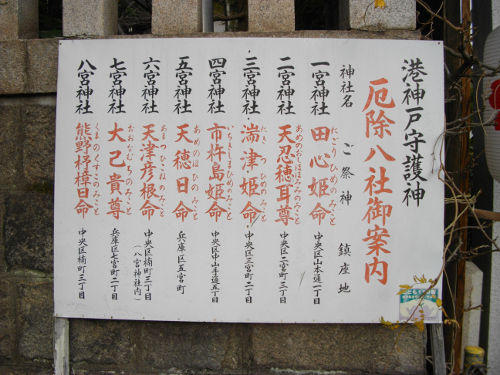 港神戸守護神
厄除八社御案内
神社名 ご祭神 鎮座地
一宮神社 田心姫命 中央区山本通一丁目
たごりひめのみこと
二宮神社 天忍穂耳尊 中央区二宮町三丁目
あめのおしほみみのみこと
三宮神社 湍津姫命 中央区三宮町二丁目
たきつひめのみこと
四宮神社 市杵島姫命 中央区中山手通五丁目
いちきしまひめのみこと
五宮神社 天穂日命 兵庫区五宮町
あめのほひのみこと
六宮神社 天津彦根命 中央区楠町三丁目
(八宮神社内)
あまつひこねのみこと
七宮神社 大己貴尊 兵庫区七宮町二丁目
おおなむちのみこと
八宮神社 熊野杼樟日命 中央区楠町三丁目
くまのくすひのみこと